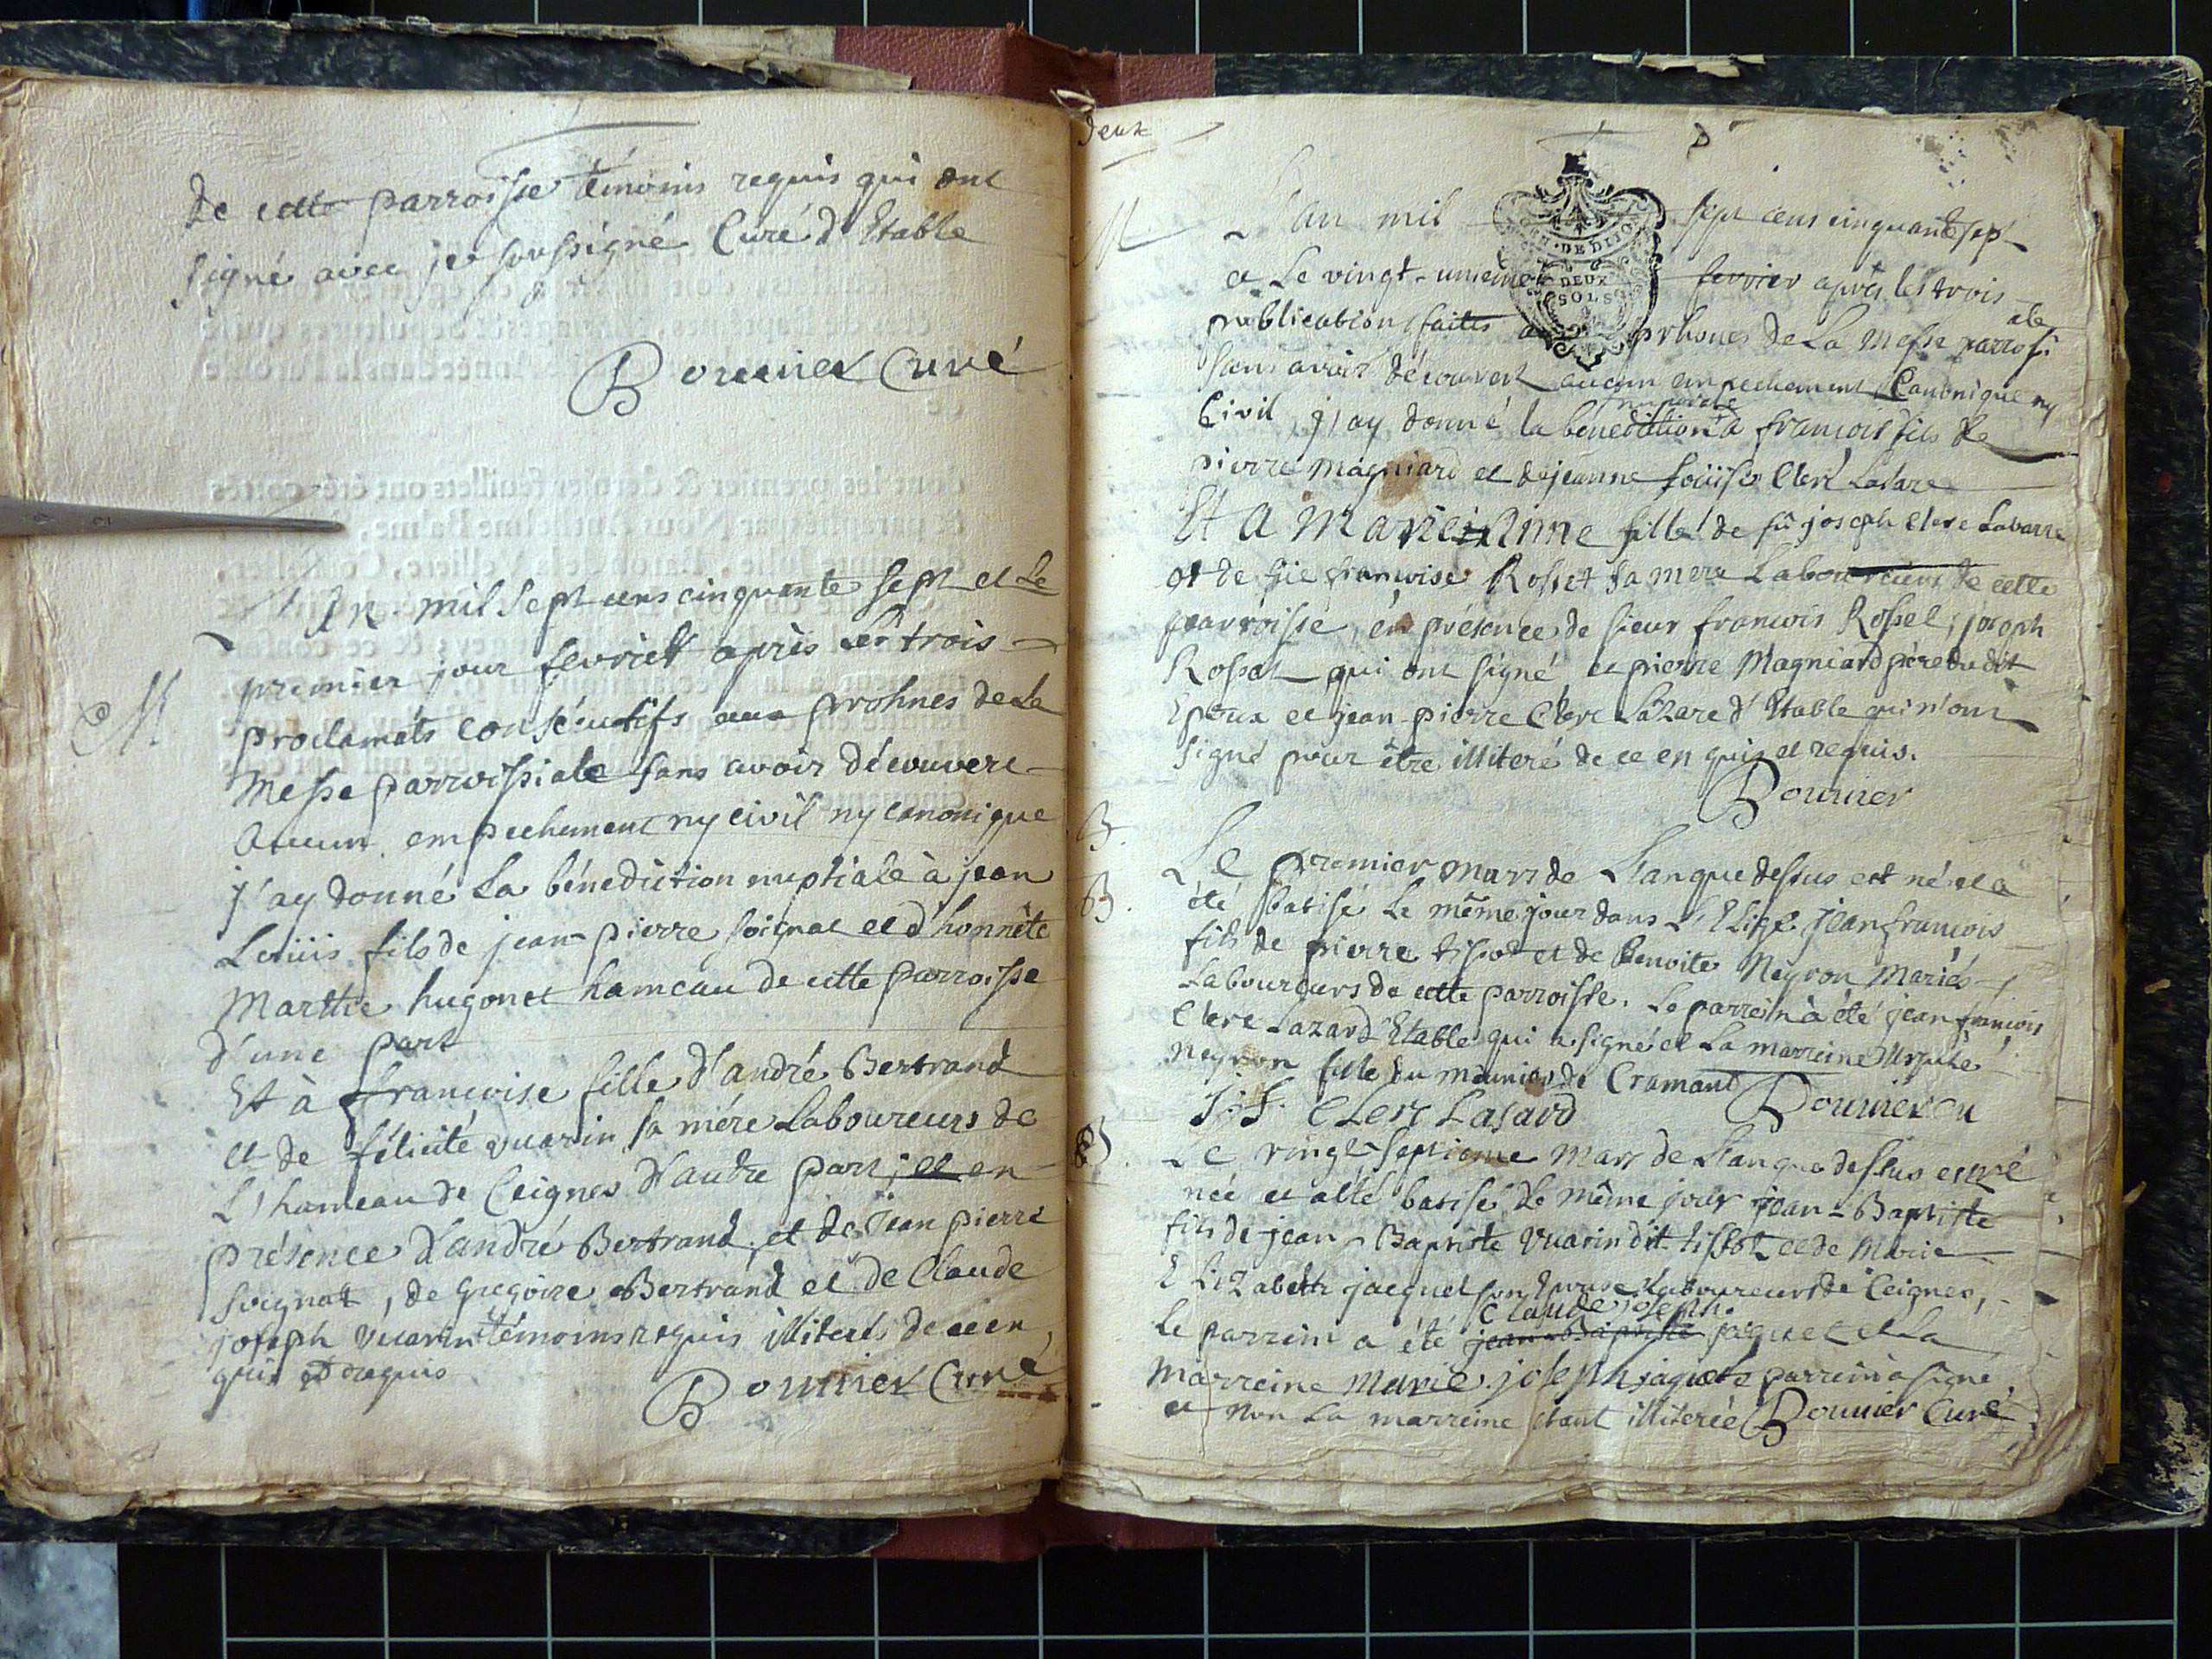 de cette parroisse témoins requis qui ont
signé avec je soussigné Curé d'Etable
Bouvier Curé
M
L'An mil sept cens cinquante sept et Le
premier jour fevrier après les trois
proclamats consécutifs aux prohnes de La
Messe parroissiale sans avoir découvert
Aucun empechement ny civil ny canonique
j'ay donné La bénediction nuptiale à jean
Loüis fils de jean pierre soignat et d'honnête
Marthe hugonet hameau de cette parroisse
d'une part
Et à francoise fille d'andré Bertrand
et de félicité vuarin sa mére Laboureurs de
L'hameau de Ceignes d'autre part, et en
présence d'andré Bertrand, et de Jean pierre
soignat, de gregoire Bertrand et de Claude
joseph Vuarin témoins requis illiterés de ce en
quis et requis
Bouvier Curé
deux
M
L'an mil sept cens cinquante sept
et Le vingt-unieme fevrier après les trois
publications faites au prhones de La Messe parrossi
ale
sans avoir découvert aucun empechement Canonique ny
Civil, j'ay donné la benediction à francois fils de
nuptiale
pierre Magniard et de jeanne Loüise Clerc Lazare
Et A Marie Anne fille de fû joseph Clerc Lavarre
et de fûe francoise Rosset sa mere Laboureurs de cette
parroisse, en présence de sieur francois Rossel, joseph
Rosset qui ont signé et pierre Magniard père du dit
Epoux et jean-pierre Clerc Lazare d'Etable qui n'ont
signé pour être illiteré de ce en quis et requis.
Bouvier
B.
B.
Le premier mars de L'an que dessus est né et a
été batisé Le même jour dans L'Eglise jean francois
fils de pierre tissot et de Benoite Neyron Mariés
Laboureurs de cette parroisse. Le parrein à été jean francois
Clerc Lazard d'Etable qui a signé et La marreine Ursule
neyron fille du meunier de Cramant
J.f. Clerc Lasard Bouvier cu
B.
Le vingt-septieme Mars de L'an que dessus est né
née et a été batisé Le même jour jean-Baptiste
fils de jean-Baptiste Vuarin dit tissot et de Marie
Elizabeth jacquet son Epouse Laboureurs de Ceignes,
Claude joseph
Le parrein a été jean-Baptiste jaquet et La
Marreine Marie joseph jaquet parrein à signé
et non La marreine étant illiterée Bouvier Curé
DE DIJON
DEUX
SOLS